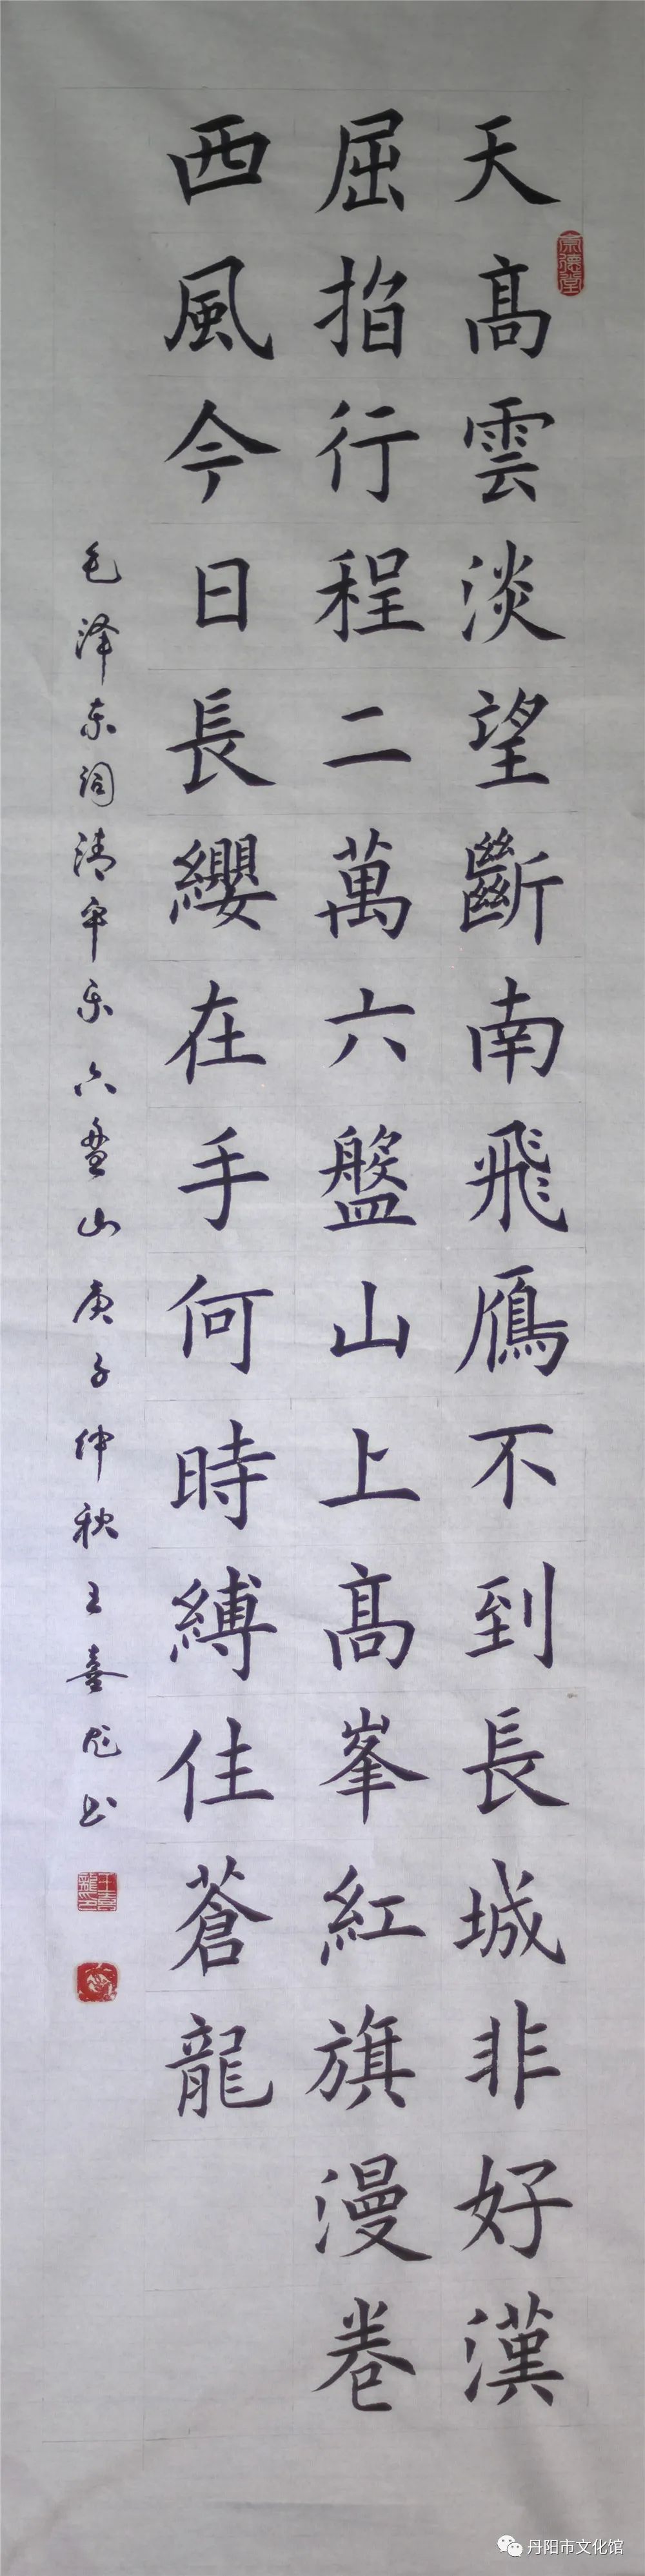 天高雲淡望斷南飛鴈不到長城非好漢
屈指行程二萬六盤山上高峯紅旗漫卷
西風今日長纓在手何時縛住蒼龍
毛泽东词清平乐六盘山庚子仲秋王喜龙书
崇德堂
丹阳市文化馆